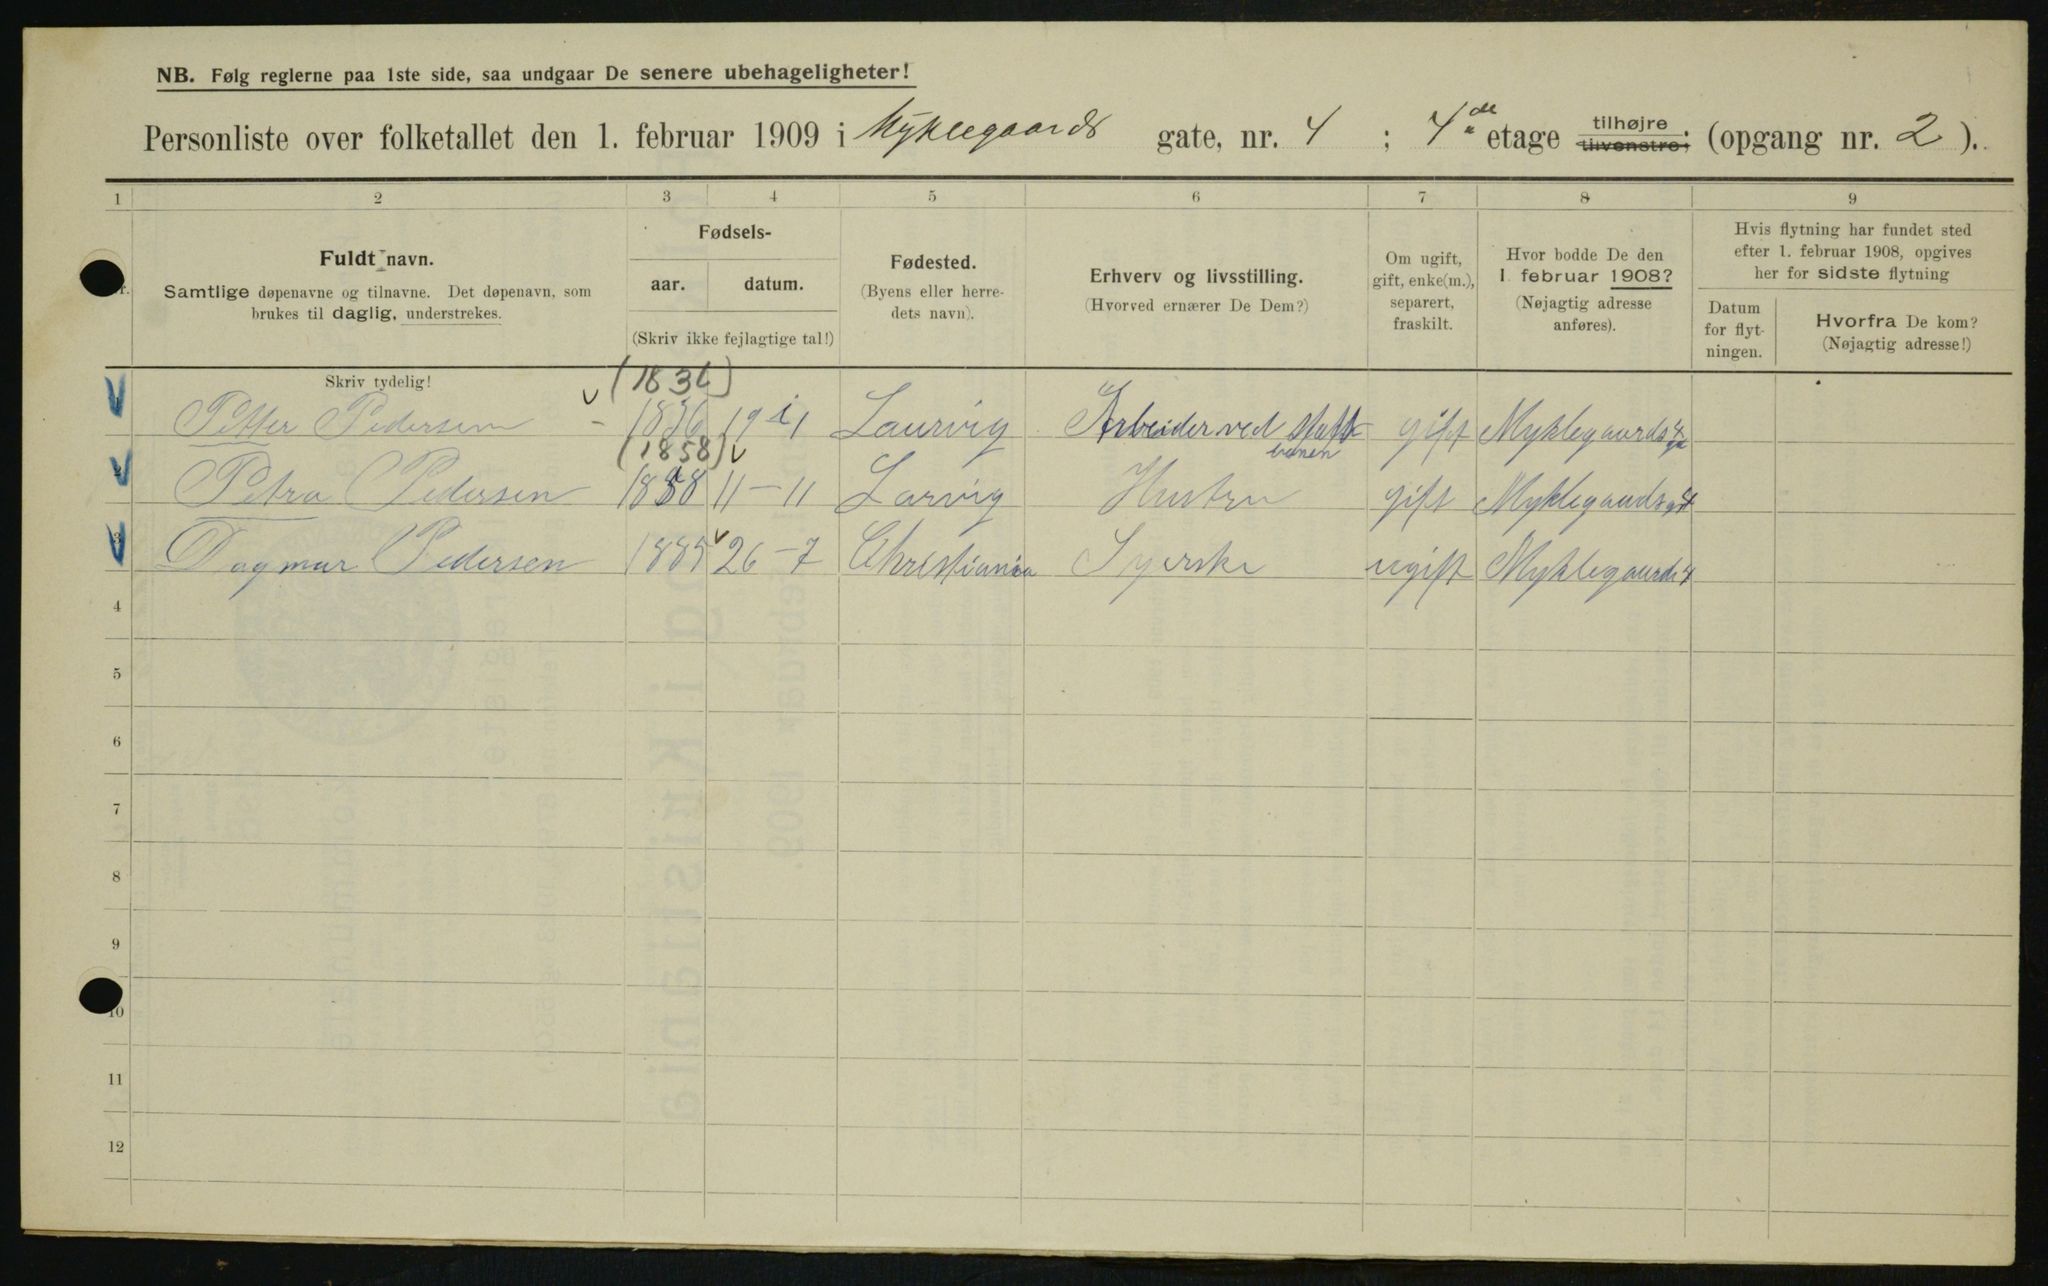 NB. Følg reglerne paa 1ste side, saa undgaar De senere ubehageligheter!
Personliste over folketallet den 1. februar 1909 i Myklegaards gate, nr. 4 ; 4de etage tilhøjre tilvenstre; (opgang nr. 2 ).
1 2 3 4 5 6 7 8 9
Fuldt navn.
Samtlige døpenavne og tilnavne. Det døpenavn, som
brukes til daglig, understrekes.
Fødsels-
aar. datum.
(Skriv ikke fejlagtige tal!)
Fødested.
(Byens eller herre-
dets navn).
Erhverv og livsstilling.
(Hvorved ernærer De Dem?)
Om ugift,
gift, enke(m.),
separert,
fraskilt.
Hvor bodde De den
1. februar 1908?
(Nøjagtig adresse
anføres).
Hvis flytning har fundet sted
efter 1. februar 1908, opgives
her for sidste flytning
Datum
for flyt-
ningen.
Hvorfra De kom?
(Nøjagtig adresse!)
Skriv tydelig! (1836)
Petter Pedersen - 1836 19 1 Laurvig Arbeider ved Stats gift Myklegaardsg 4
(1858) banen
2 Petra Pedersen 1858 11-11 Larvig Hustru gift Myklegaardsg 4
3 Dagmar Pedersen 1885 26-7 Christiania Syerske ugift Myklegaards 4
4
5
6
7
8
9
10
11
12